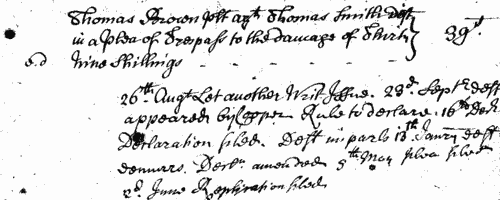 Thomas Brown plt agt Thomas Smith Deft
in a Plea of Trespass to the Damage of Thirty } 39s.
e.d nine Shillings - - - -
26th. Augt Let another Writ Issue. 23d. Septr. deft
appeared by Copper Rule to declare. 16th Decr.
Declaration filed. Deft imparls 13th Janry deft
demurrs. Decln amended 5th May plea filed
2d. June Replication filed